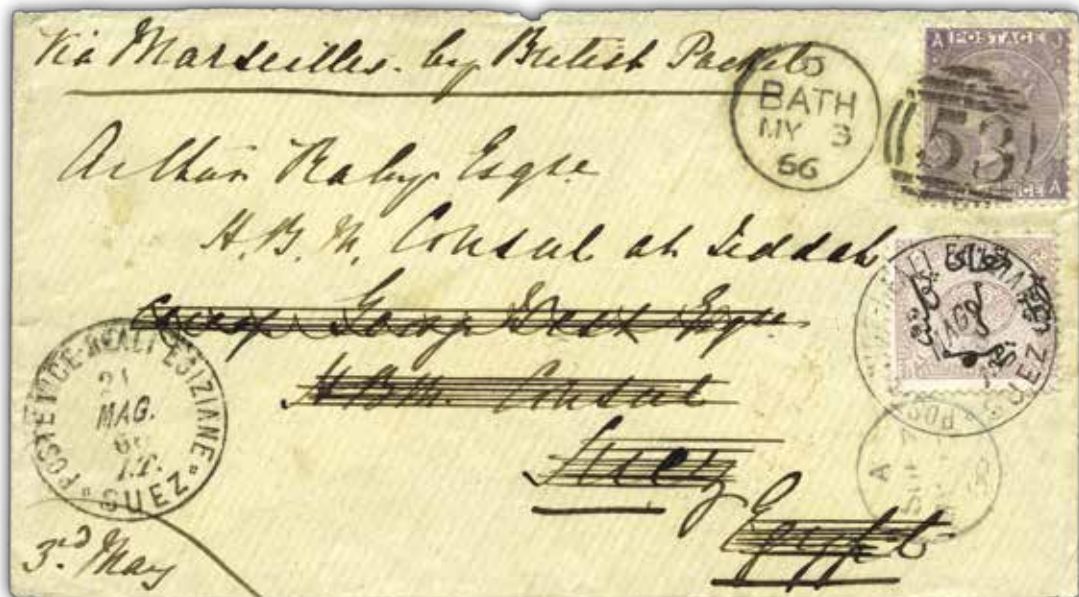 Via Marseilles. by British Packet
A POSTAGE J
BATH
MY 3
66
53
NCE A
Arthur Raby Esqre
H.B.M. Consul at Jeddah
George West Esqre
H.B.M. Consul
Suez
Egypt
POSTE VICE-REALI EGIZIANE
21
MAG.
66
I.T.
SUEZ
SUEZ
A
3rd May